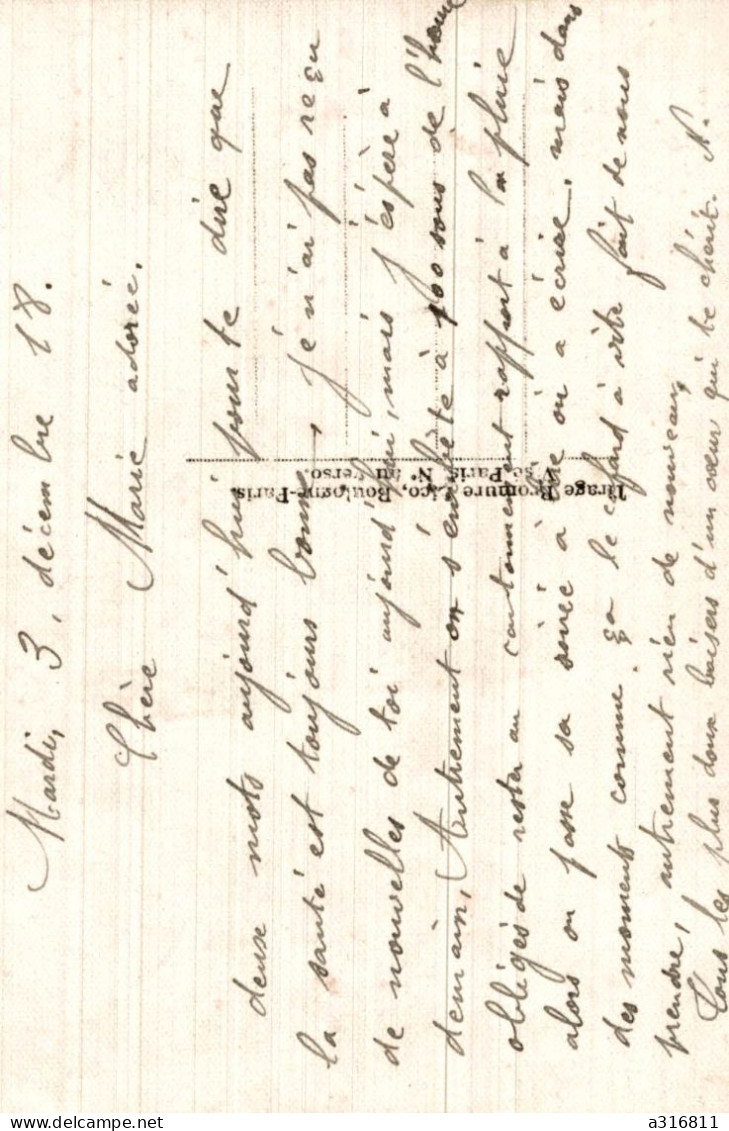 Mardi, 3, décembre 18.
Chère Marie adorée.
deux mots aujourd'hui pour te dire que
la santé est toujours bonne, je n'ai pas reçu
de nouvelles de toi aujourd'hui, mais j'éspère à
demain, Autrement on s'embête à 100 sous de l'heure
obligés de rester au cantonnement rapport à la pluie
alors on passe sa soirée à lire où a écrire, mais dans
des moments comme ça le cafard à vite fait de nous
prendre, autrement rien de nouveau,
Tous les plus doux baisers d'un coeur qui te chérit. N.
Tirage Bromure Lico, Boulogne-Paris.
Visé, Paris, N° au verso.
Delcampe.net
a316811